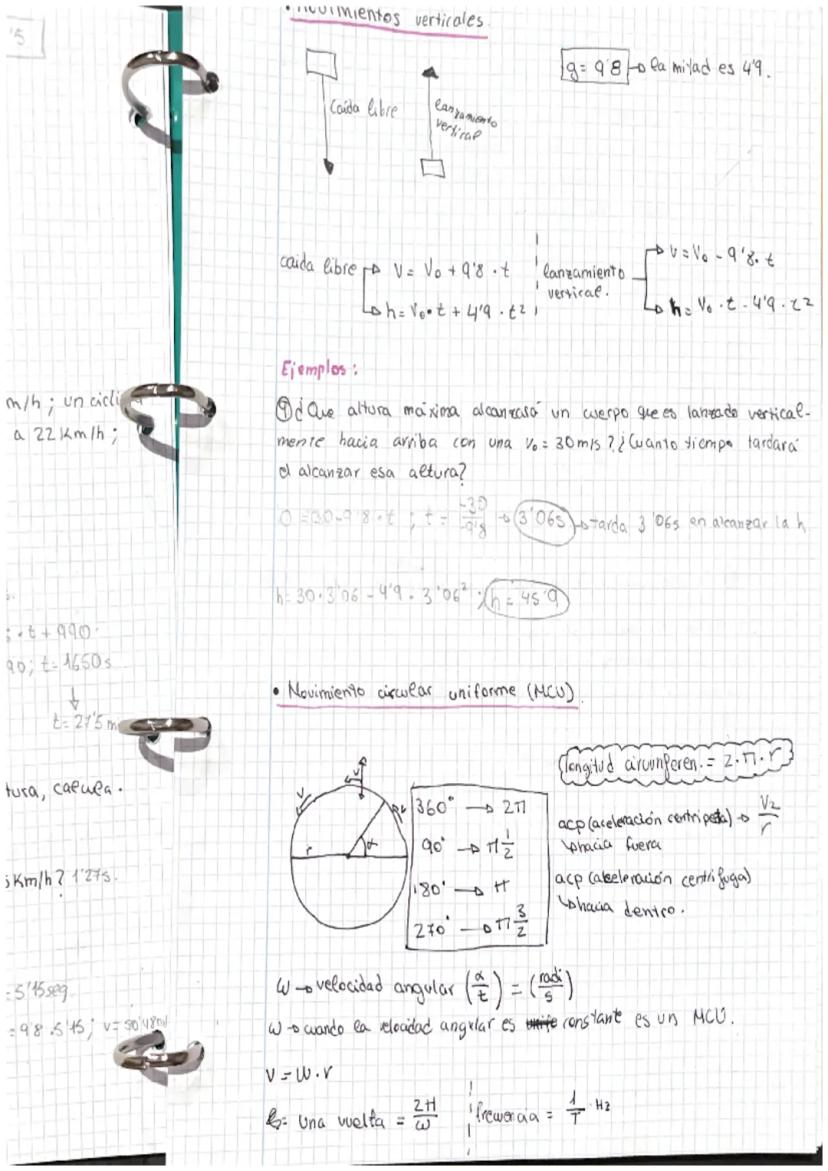 '5
m/h; un cicli
a 22 Km/h;
· t + 990
90; t = 1650 s
↓
t = 27'5 m
tura, calcula.
Km/h? 1'27s.
= 5'15 seg.
= 9'8 · 5'15; v = 50'480
• Movimientos verticales
g = 9'8 → la mitad es 4'9.
Caída libre
lanzamiento
vertical
caida libre → v = V₀ + 9'8 · t
→ h = V₀ · t + 4'9 · t²
lanzamiento
vertical.
→ v = V₀ - 9'8 · t
→ h = V₀ · t - 4'9 · t²
Ejemplos:
① ¿Que altura máxima alcanzará un cuerpo que es lanzado vertical-
mente hacia arriba con una V₀ = 30 m/s? ¿Cuanto tiempo tardará
el alcanzar esa altura?
0 = 30 - 9'8 · t ; t = -30/-9'8 → 3'06s → tarda 3'06s en alcanzar la h
h = 30 · 3'06 - 4'9 · 3'06² ; h = 45'9
• Movimiento circular uniforme (MCU).
longitud circunferen. = 2 · π · r
v
v
v
r
α
360° → 2π
90° → π 1/2
180° → π
270° → π 3/2
acp (aceleración centripeta) → V2/r
↳ hacia fuera
acp (aceleración centrifuga)
↳ hacia dentro.
ω → velocidad angular (α/t) = (radi/s)
ω → cuando la velocidad angular es constante es un MCU.
v = ω · r
una vuelta = 2π/ω
frecuencia = 1/T Hz